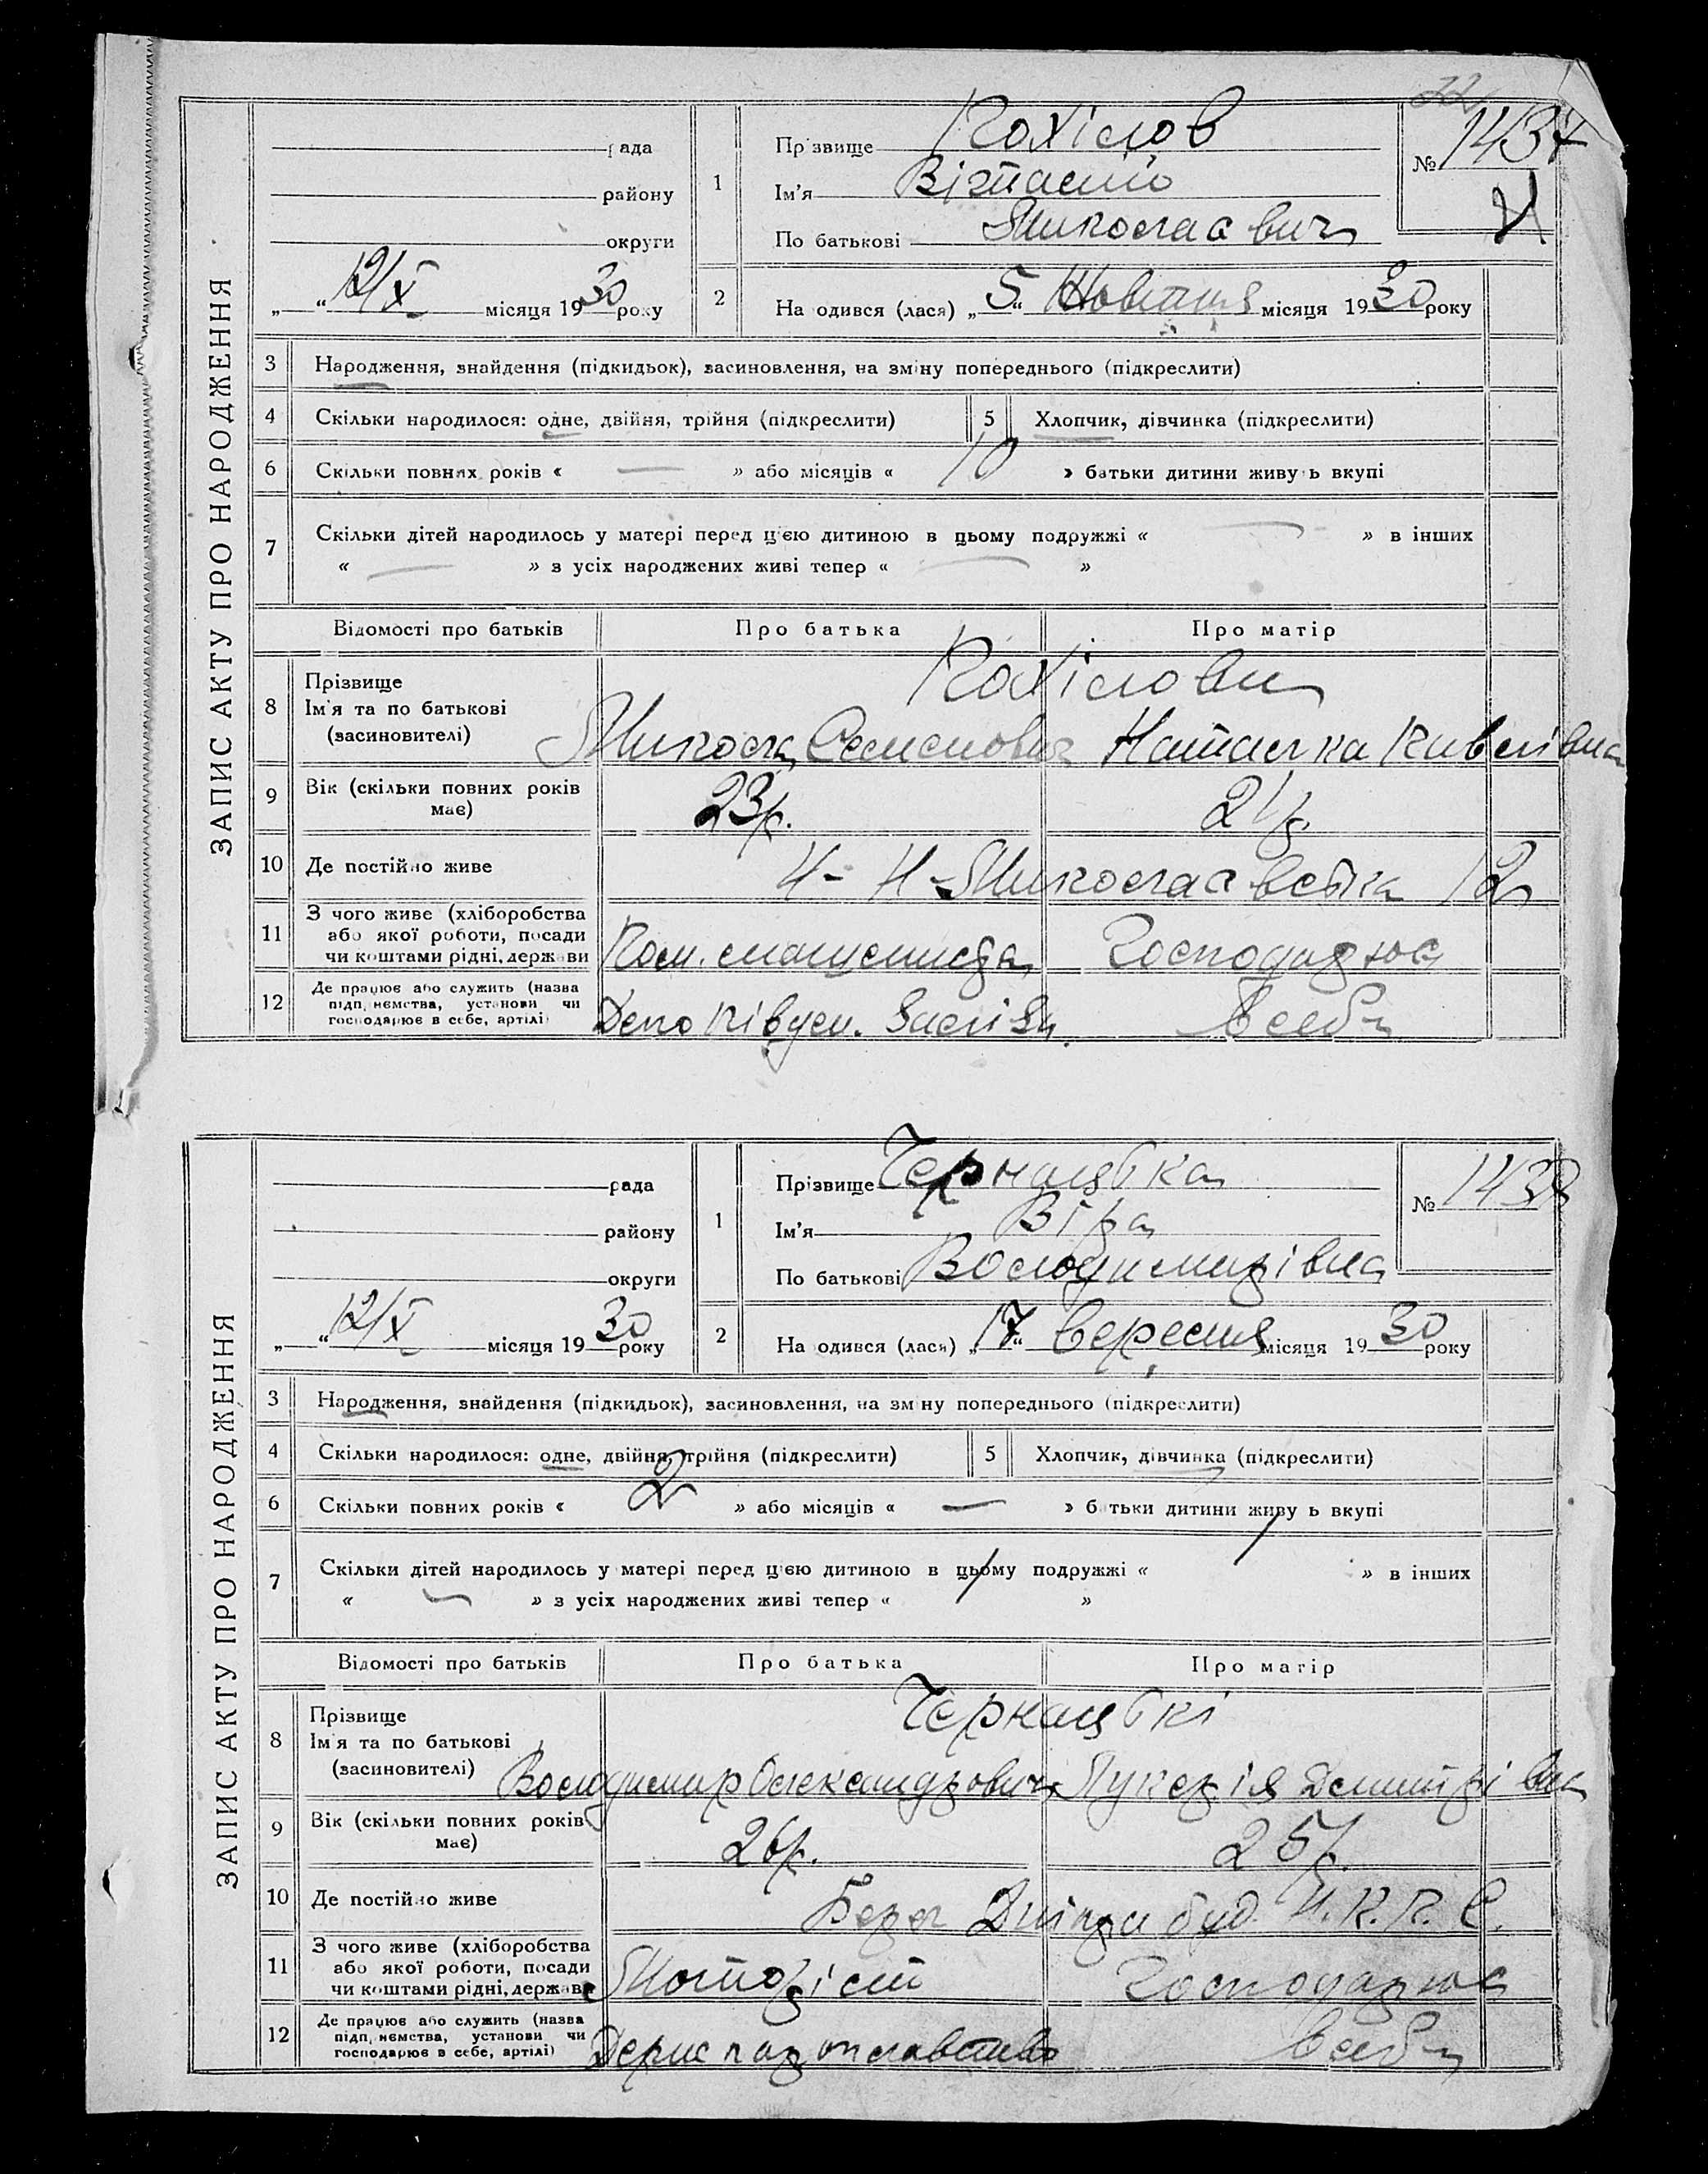 22
ЗАПИС АКТУ ПРО НАРОДЖЕННЯ
рада
району
округи
„ “ 12/X місяця 1930 року
1
Прізвище Кохілов
Ім'я Віталій
По батькові Миколаєвич
№ 1437
2
Народився (лася) „5“ Жовтня місяця 1930 року
3 Народження, знайдення (підкидьок), засиновлення, на зміну попереднього (підкреслити)
4 Скільки народилося: одне, двійня, трійня (підкреслити)
5 Хлопчик, дівчинка (підкреслити)
6 Скільки повних років « — » або місяців « 10 » батьки дитини живуть вкупі
7 Скільки дітей народилось у матері перед цією дитиною в цьому подружжі « — » в інших
« — » з усіх народжених живі тепер « — »
Відомості про батьків Про батька Про матір
8 Прізвище
Ім'я та по батькові
(засиновителі)
Кохілови
Микола Семенович Наталка
9 Вік (скільки повних років
має)
23 р. 21 р.
10 Де постійно живе
Миколаєвська 12
11 З чого живе (хліборобства
або якої роботи, посади
чи коштами рідні, держави
Пом. машиніста Господарює
12 Де працює або служить (назва
підприємства, установи чи
господарює в себе, артілі)
Депо в себе
ЗАПИС АКТУ ПРО НАРОДЖЕННЯ
рада
району
округи
„ “ 12/X місяця 1930 року
1
Прізвище Чернацька
Ім'я Віра
По батькові Володимирівна
№ 1438
2
Народився (лася) „17“ вересня місяця 1930 року
3 Народження, знайдення (підкидьок), засиновлення, на зміну попереднього (підкреслити)
4 Скільки народилося: одне, двійня, трійня (підкреслити)
5 Хлопчик, дівчинка (підкреслити)
6 Скільки повних років « 2 » або місяців « — » батьки дитини живуть вкупі
7 Скільки дітей народилось у матері перед цією дитиною в цьому подружжі « 1 » в інших
« — » з усіх народжених живі тепер « 1 »
Відомості про батьків Про батька Про матір
8 Прізвище
Ім'я та по батькові
(засиновителі)
Чернацькі
Володимир Олександрович Лукерія Дмитрівна
9 Вік (скільки повних років
має)
26 р. 25 р.
10 Де постійно живе
Берег Дніпра буд. Н.К.П.С.
11 З чого живе (хліборобства
або якої роботи, посади
чи коштами рідні, держави
Моторіст Господарює
12 Де працює або служить (назва
підприємства, установи чи
господарює в себе, артілі)
Держпароплавство в себе